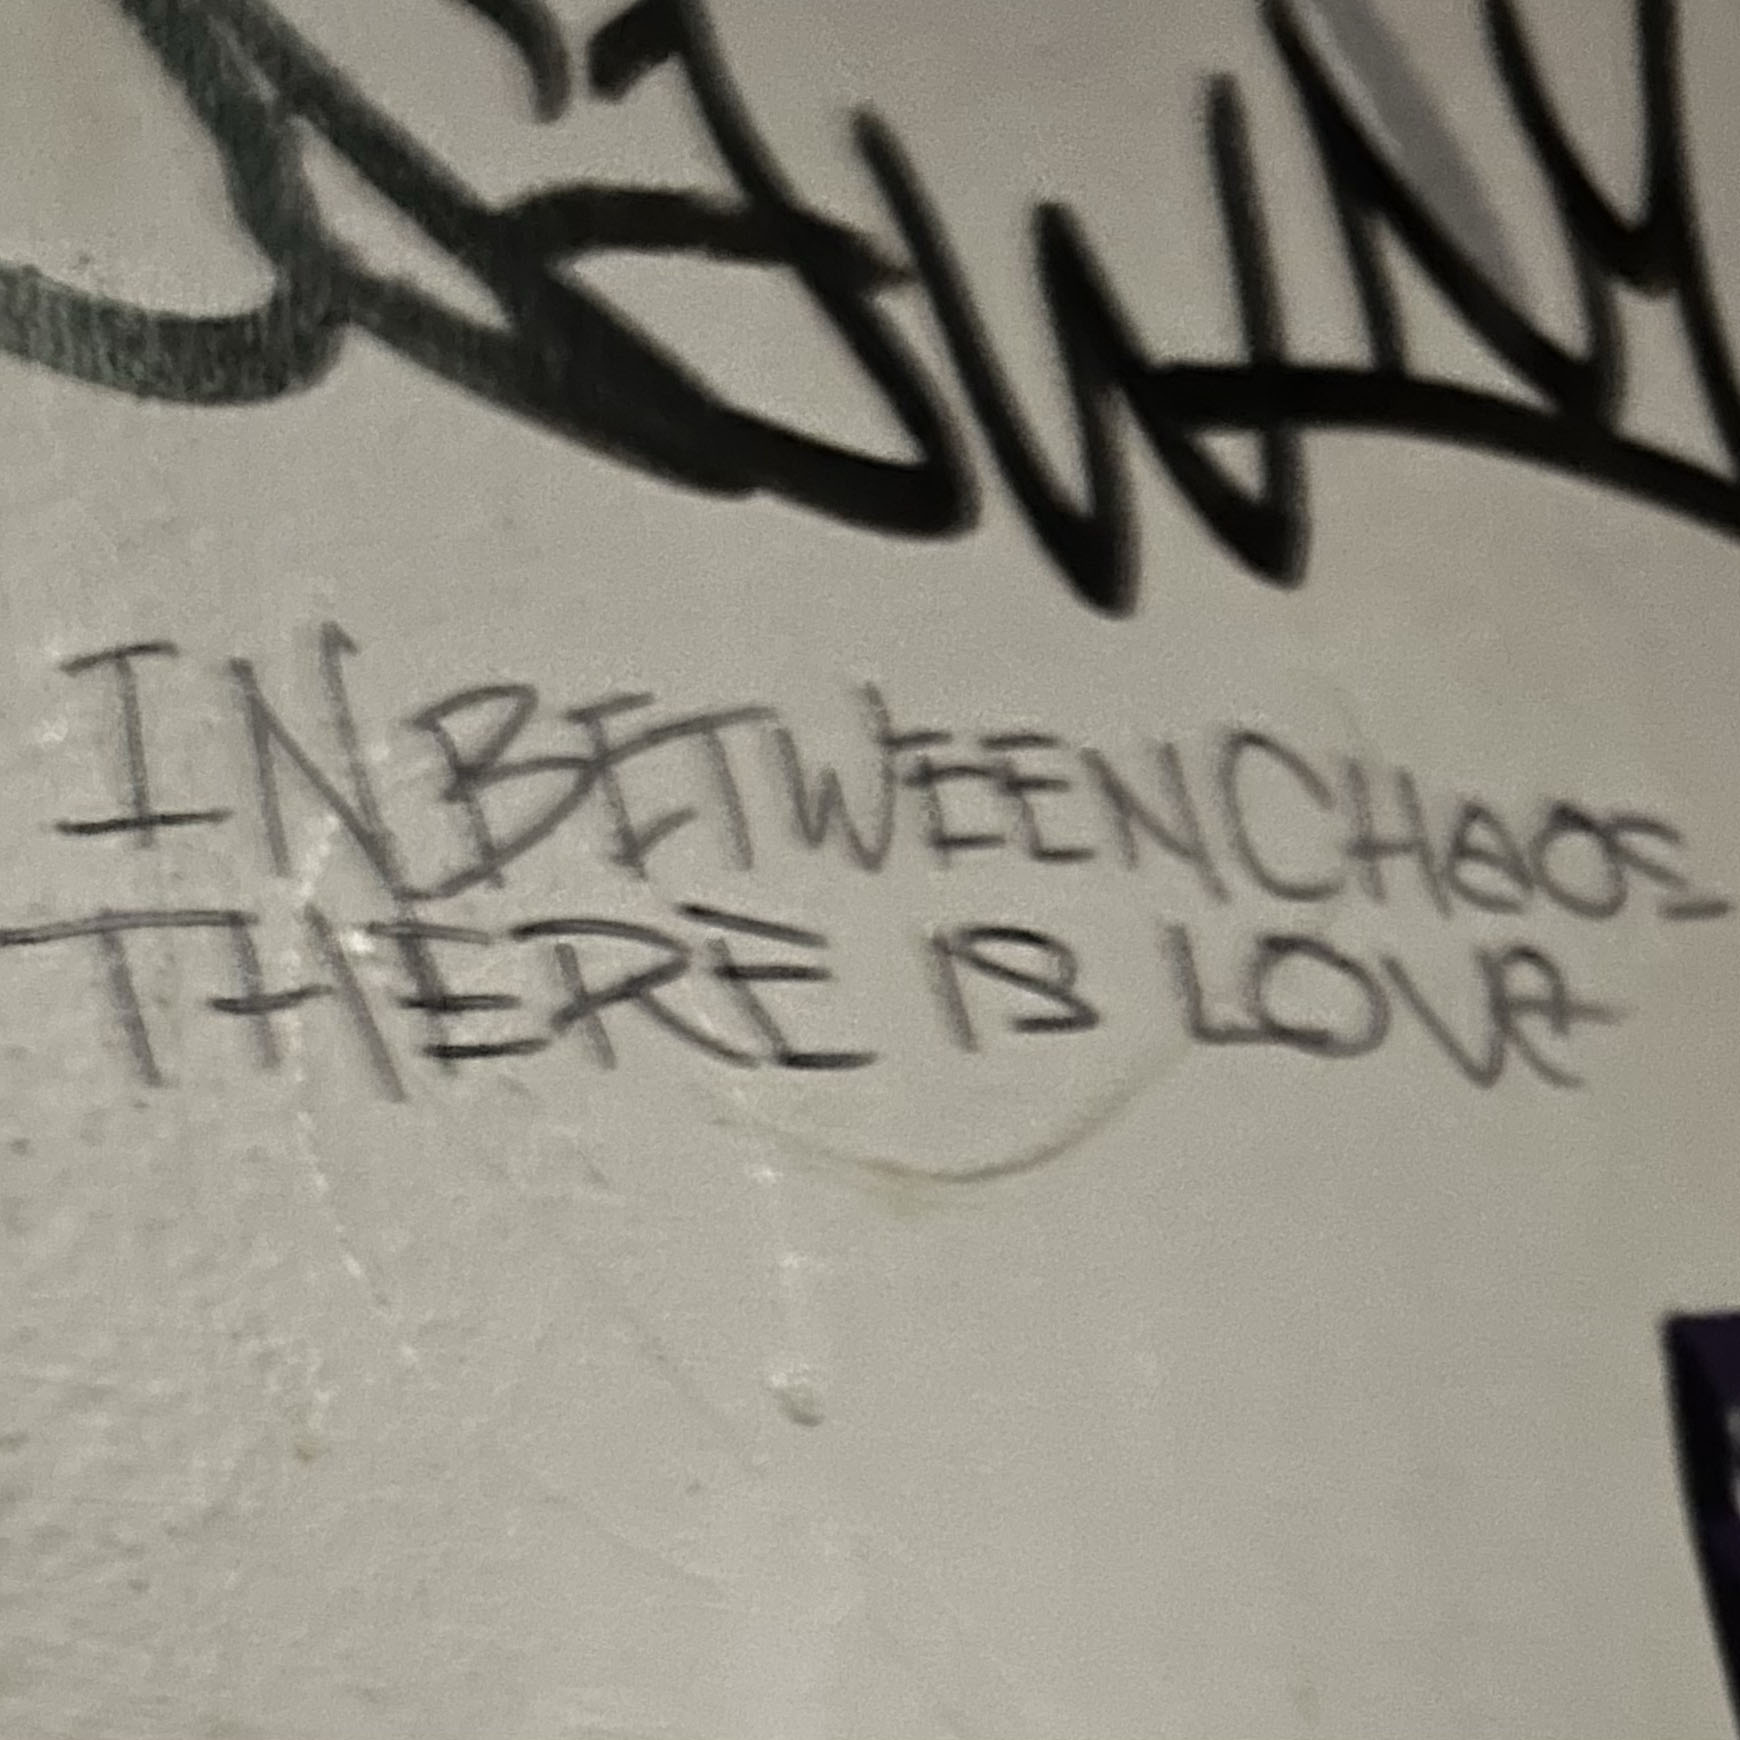 IN BETWEEN CHAOS
THERE IS LOVE